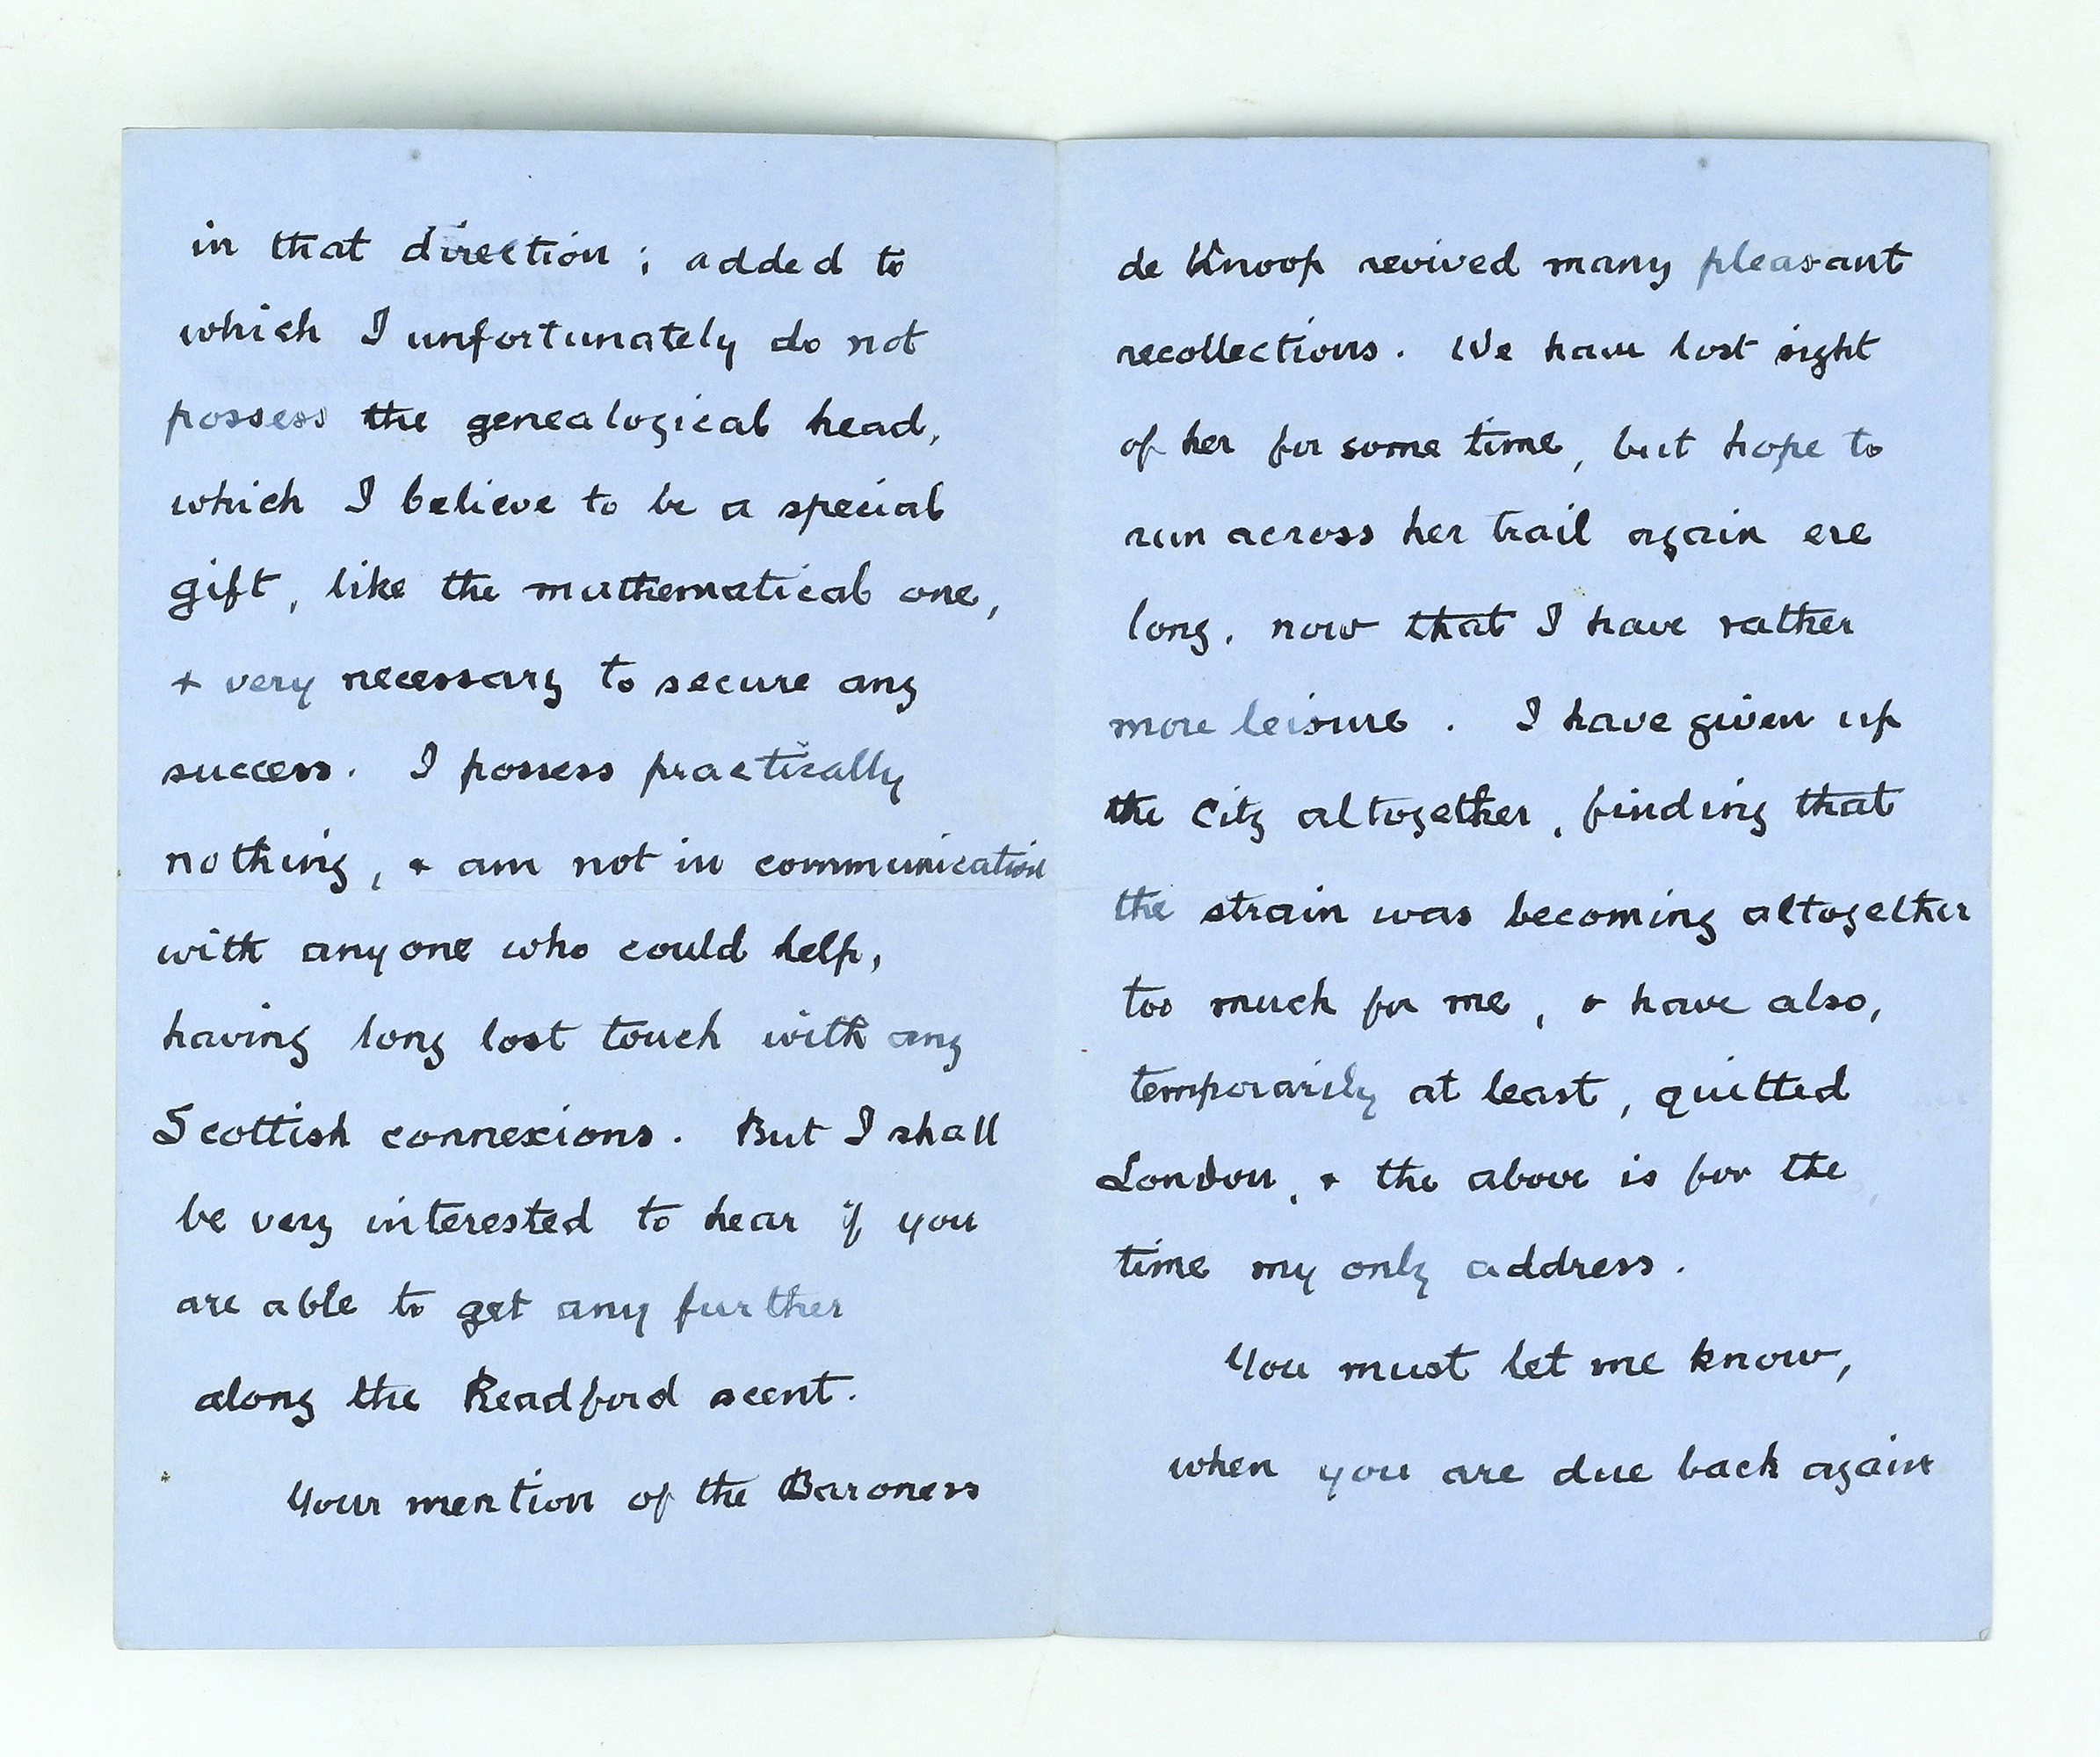 in that direction; added to
which I unfortunately do not
possess the genealogical head,
which I believe to be a special
gift, like the mathematical one,
+ very necessary to secure any
success. I possess practically
nothing, + am not in communication
with anyone who could help,
having long lost touch with any
Scottish connexions. But I shall
be very interested to hear if you
are able to get any further
along the Readford scent.
Your mention of the Baroness
de Knoop revived many pleasant
recollections. We have lost sight
of her for some time, but hope to
run across her trail again ere
long, now that I have rather
more leisure. I have given up
the City altogether, finding that
the strain was becoming altogether
too much for me, + have also,
temporarily at least, quitted
London, + the above is for the
time my only address.
You must let me know,
when you are due back again